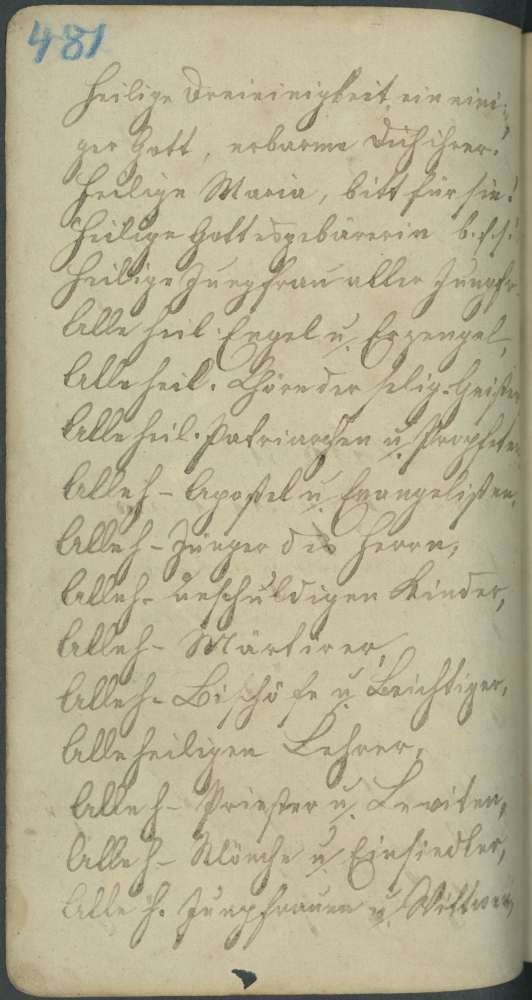 481
Heilige Dreieinigkeit, ein eini-
ger Gott, erbarme Dich ihrer.
Heilige Maria, bitt für sie!
Heilige Gottesgebärerin b. f. s.!
Heilige Jungfrau aller Jungfr
Alle heil. Engel u. Erzengel,
Alle heil. Chöre der selig. Geister
Alle heil. Patriarchen u. Propheten
Alle h- Apostel u. Evangelisten,
Alle h- Jünger des Herrn,
Alle h- unschuldigen Kinder,
Alle h- Märtirer,
Alle h- Bischöfe u. Beichtiger,
Alle heiligen Lehrer,
Alle h- Priester u. Leviten,
Alle h- Mönche u. Einsiedler,
Alle h. Jungfrauen u. Wittwen,